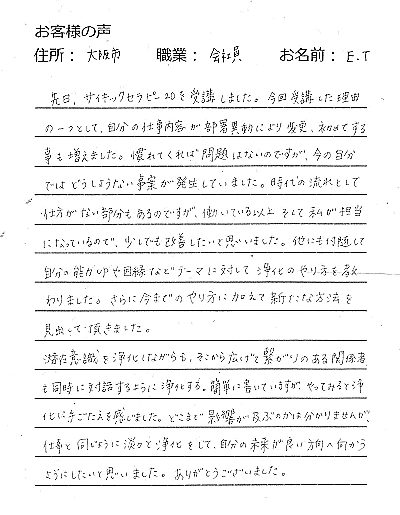 お客様の声
住所： 大阪市 職業： 会社員 お名前： E.T
先日、サイキックセラピー20を受講しました。今回受講した理由
の一つとして、自分の仕事内容が部署異動により変更、初めてする
事も増えました。慣れてくれば問題はないのですが、今の自分
ではどうしようもない事案が発生していました。時代の流れとして
仕方がない部分もあるのですが、働いている以上そして私が担当
になっているので、少しでも改善したいと思いました。他にも付随して
自分の能力UPや因縁などテーマに対して浄化のやり方を教
わりました。さらに今までのやり方に加えて新たな方法を
見出して頂きました。
潜在意識を浄化しながらも、そこから広げて繋がりのある関係者
も同時に対話するように浄化する。簡単に書いていますが、やってみると浄
化に手ごたえを感じました。どこまで影響が及ぶのかは分かりませんが、
仕事と同じように淡々と浄化をして、自分の未来が良い方向へ向かう
ようにしたいと思いました。ありがとうございました。